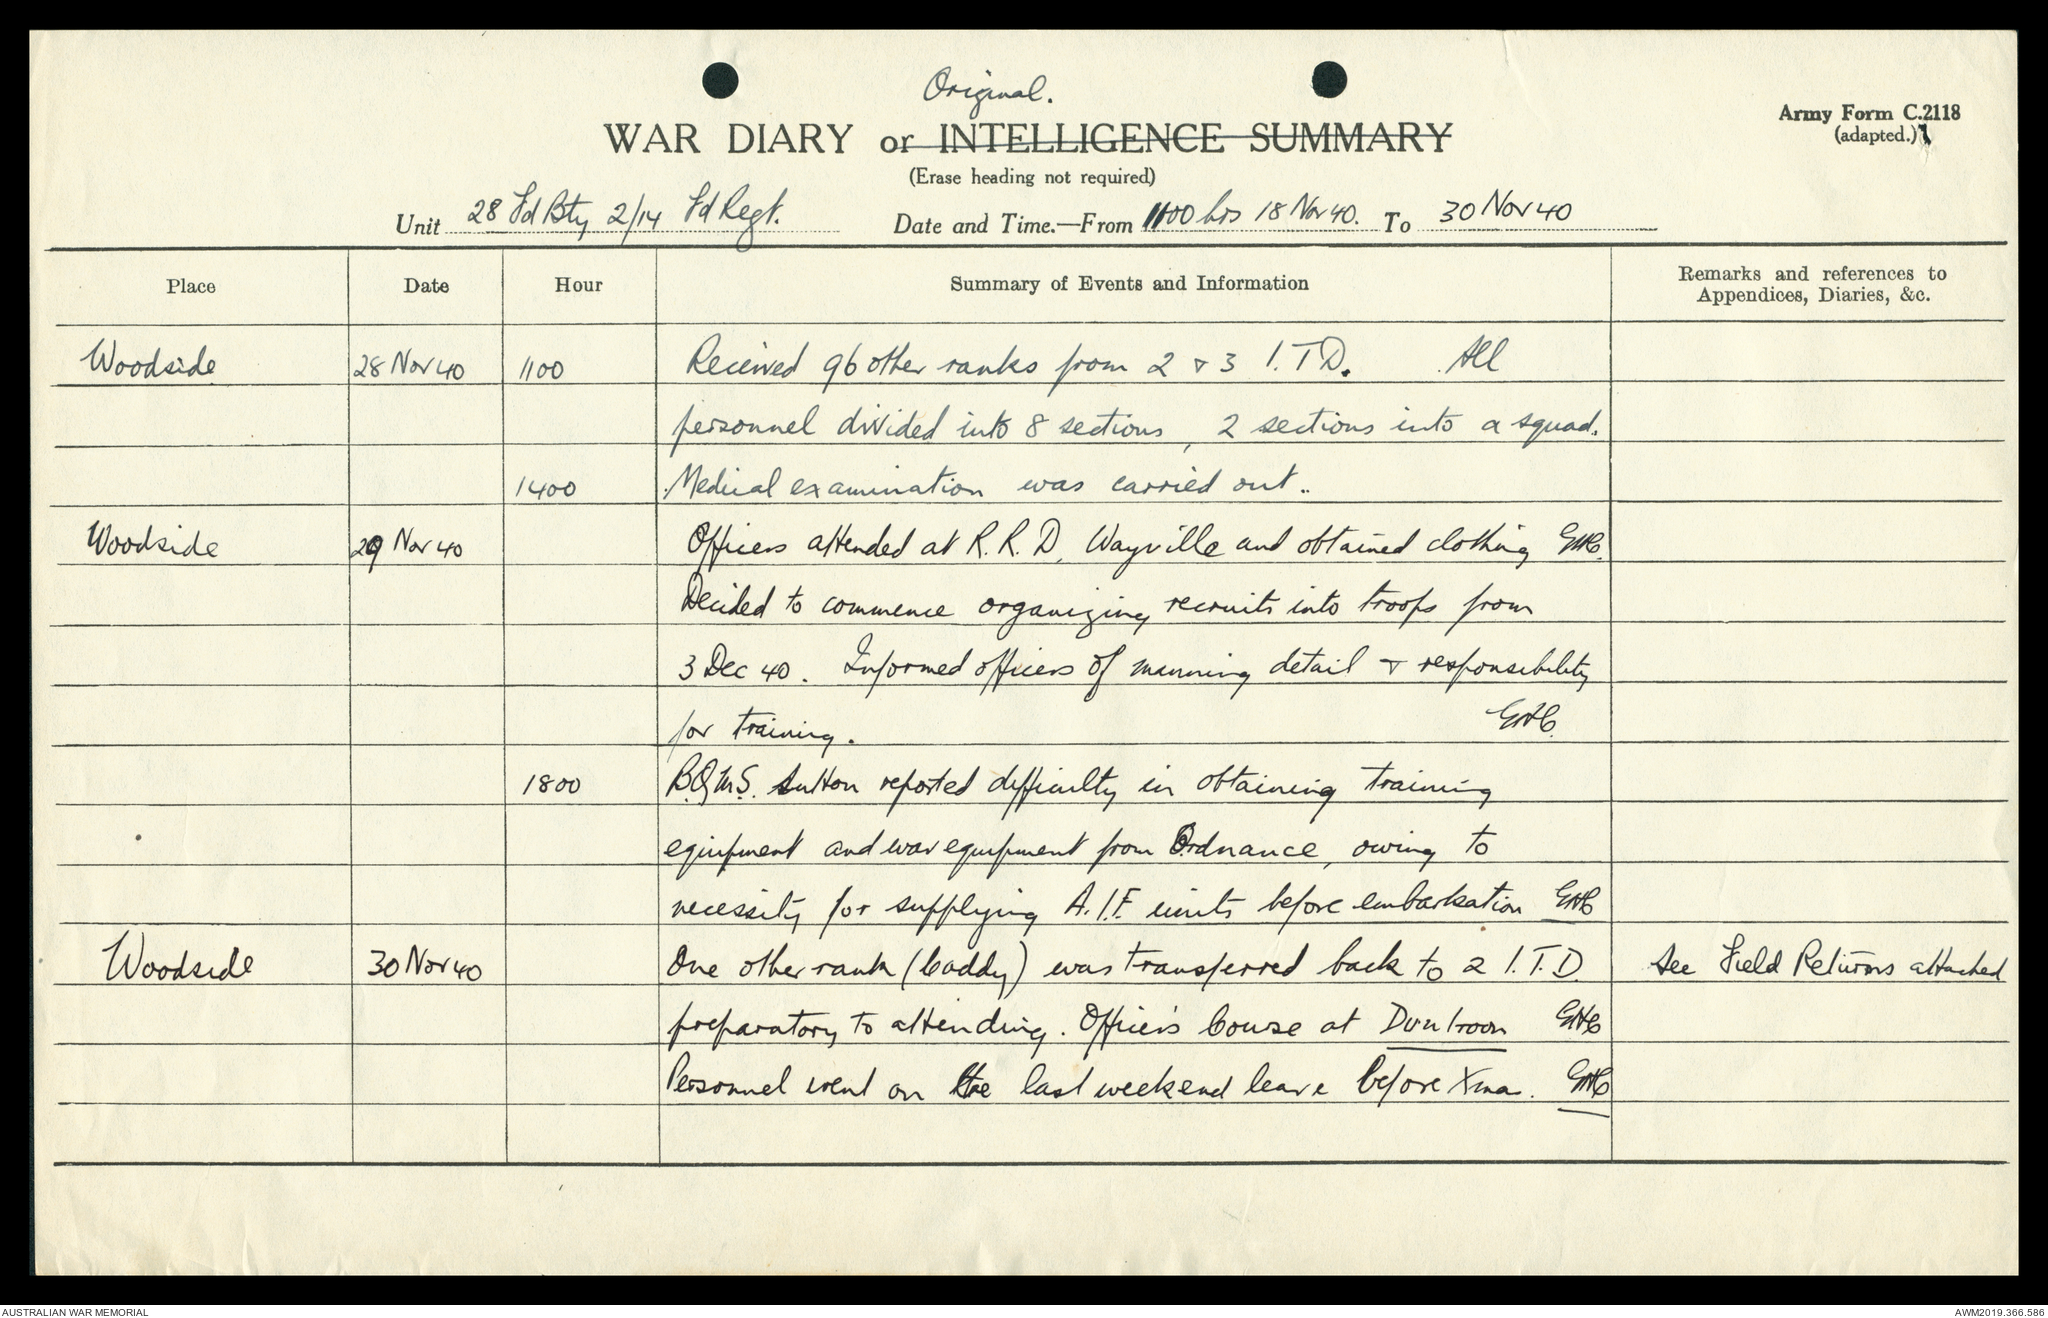 Original.
WAR DIARY or INTELLIGENCE SUMMARY
Army Form C.2118
(adapted.)
(Erase heading not required)
Unit 28 Fd Bty 2/14 Fd Regt. Date and Time.—From 1100 hrs 18 Nov 40. To 30 Nov 40
Place Date Hour Summary of Events and Information Remarks and references to Appendices, Diaries, &c.
Woodside 28 Nov 40 1100 Received 96 other ranks from 2 & 3 I.T.D. All
personnel divided into 8 sections, 2 sections into a squad.
1400 Medical examination was carried out..
Woodside 29 Nov 40 Officers attended at R.R.D. Wayville and obtained clothing GHC.
Decided to commence organizing recruits into troops from
3 Dec 40. Informed officers of manning detail & responsibility
for training. GHC.
1800 B.Q.M.S. Sutton reported difficulty in obtaining training
equipment and war equipment from Ordnance, owing to
necessity for supplying A.I.F. units before embarkation GHC
Woodside 30 Nov 40 One other rank (Caddy) was transferred back to 2 I.T.D. See Field Returns attached
preparatory to attending. Officer's Course at Duntroon GHC
Personnel went on the last weekend leave before Xmas. GHC
AUSTRALIAN WAR MEMORIAL AWM2019.366.586